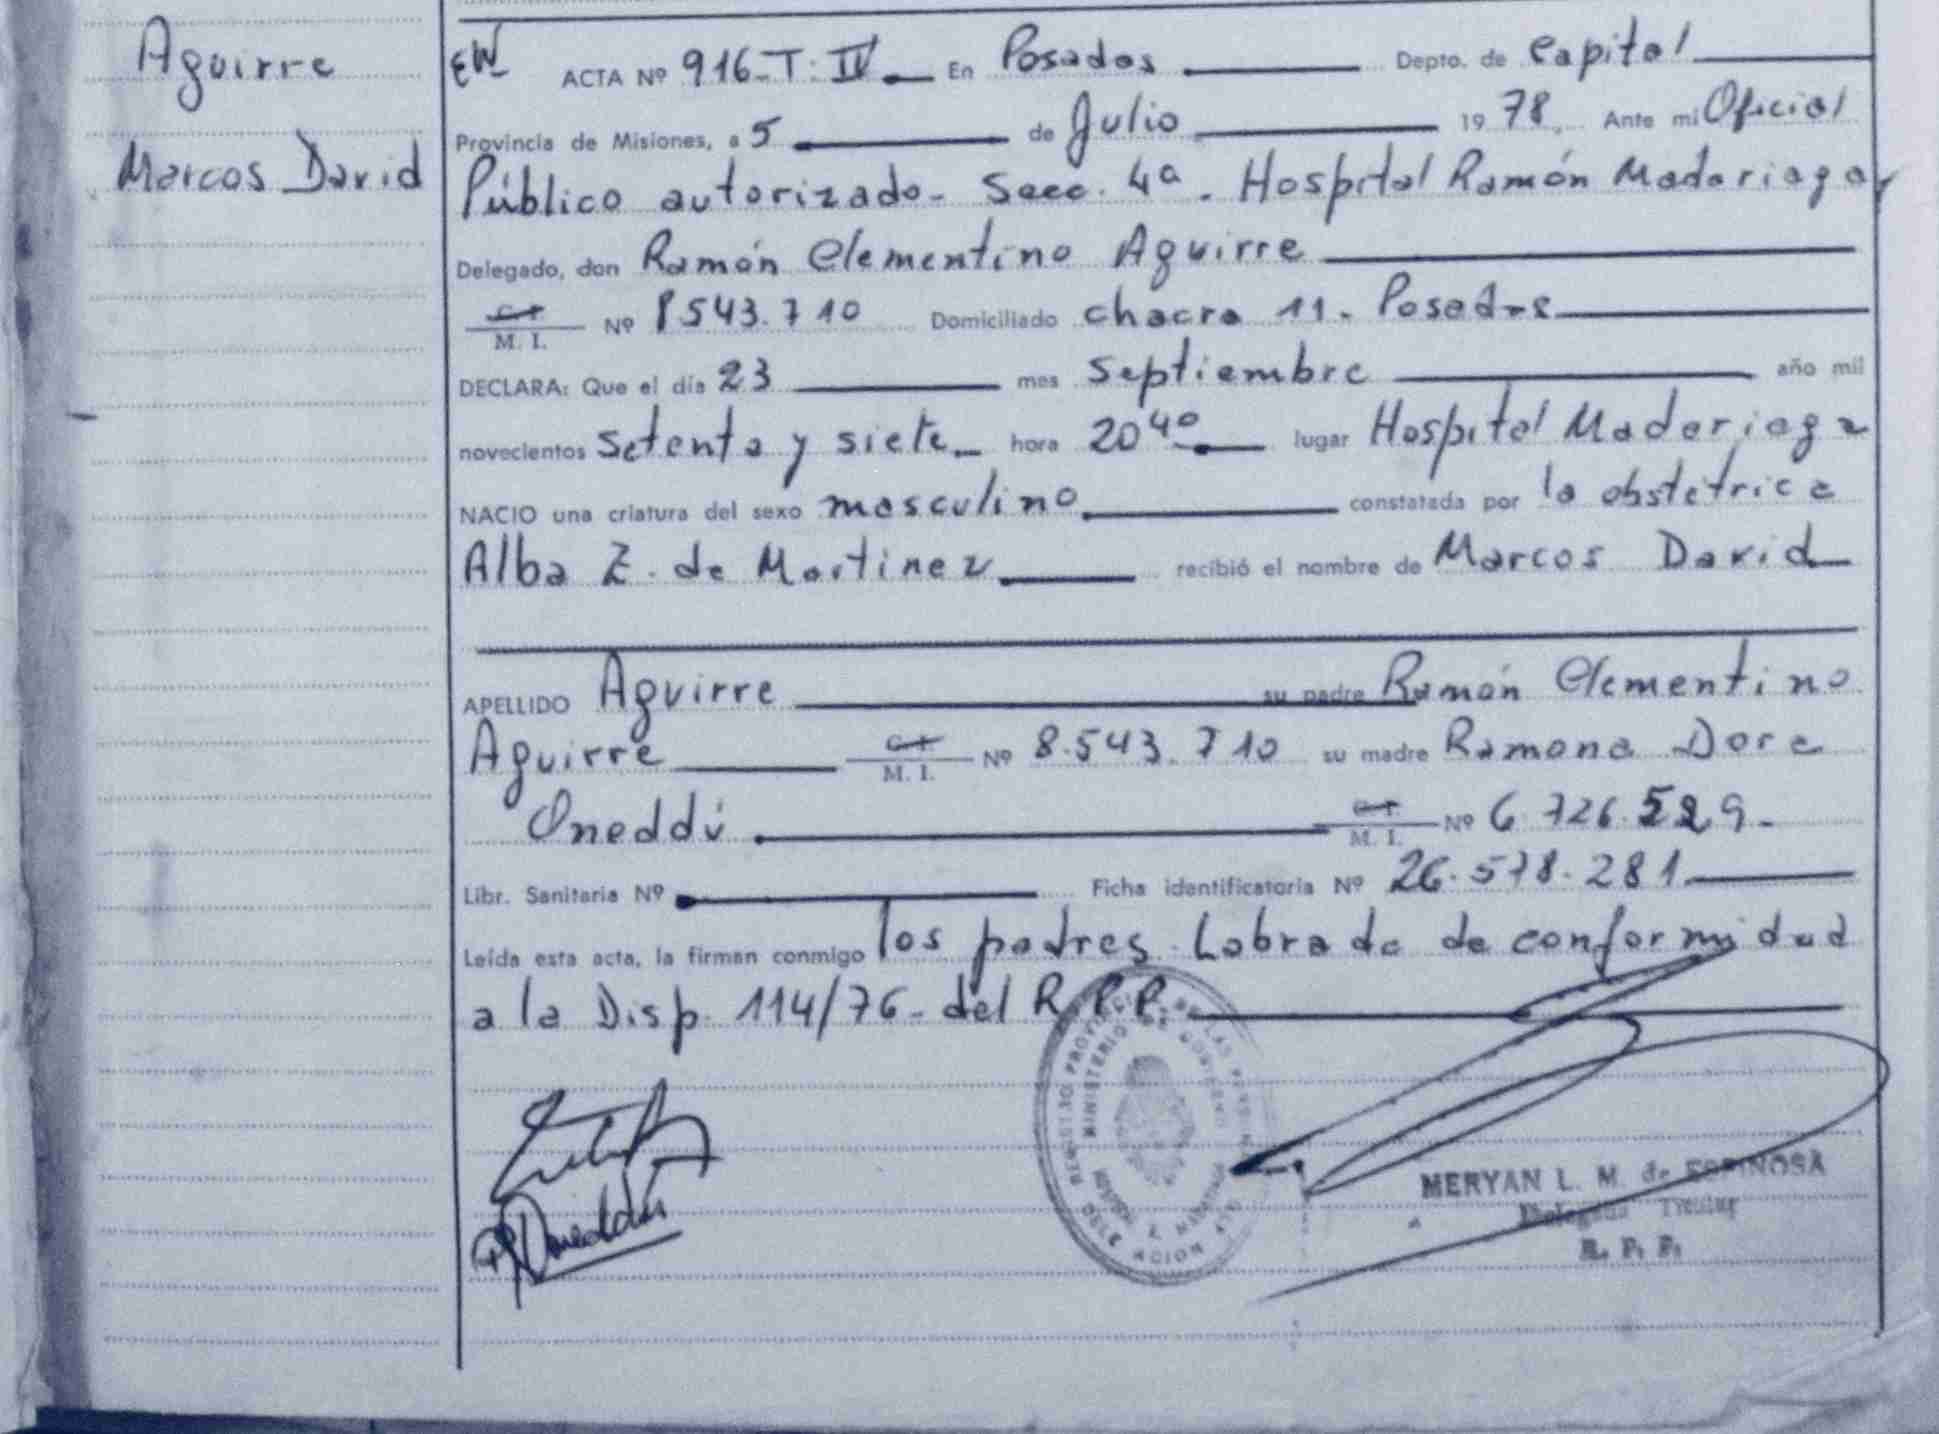 Aguirre
Marcos David
EW ACTA Nº 916-T. IV En Posadas Depto. de Capital
Provincia de Misiones, a 5 de Julio 1978, Ante mi Oficial
Público autorizado- Secc. 4ª. Hospital Ramón Madariaga,
Delegado, don Ramón Clementino Aguirre
C.I. / M. I. Nº 8543.710 Domiciliado chacra 11. Posadas
DECLARA: Que el día 23 mes septiembre año mil
novecientos setenta y siete hora 20⁴⁰ lugar Hospital Madariaga
NACIO una criatura del sexo masculino constatada por la obstetrica
Alba Z. de Martinez recibió el nombre de Marcos David
APELLIDO Aguirre su padre Ramón Clementino
Aguirre C.I. / M. I. Nº 8.543.710 su madre Ramona Dora
Oneddú C.I. / M. I. Nº 6.726.529-
Libr. Sanitaria Nº Ficha identificatoria Nº 26.578.281
Leída esta acta, la firman conmigo los padres. Labrada de conformidad
a la Disp. 114/76- del R.P.P.
REGISTRO PROVINCIAL DE LAS PERSONAS
MINISTERIO DE GOBIERNO
DELEGACION
MERYAN L. M. de ESPINOSA
Delegada Titular
R. P. P.